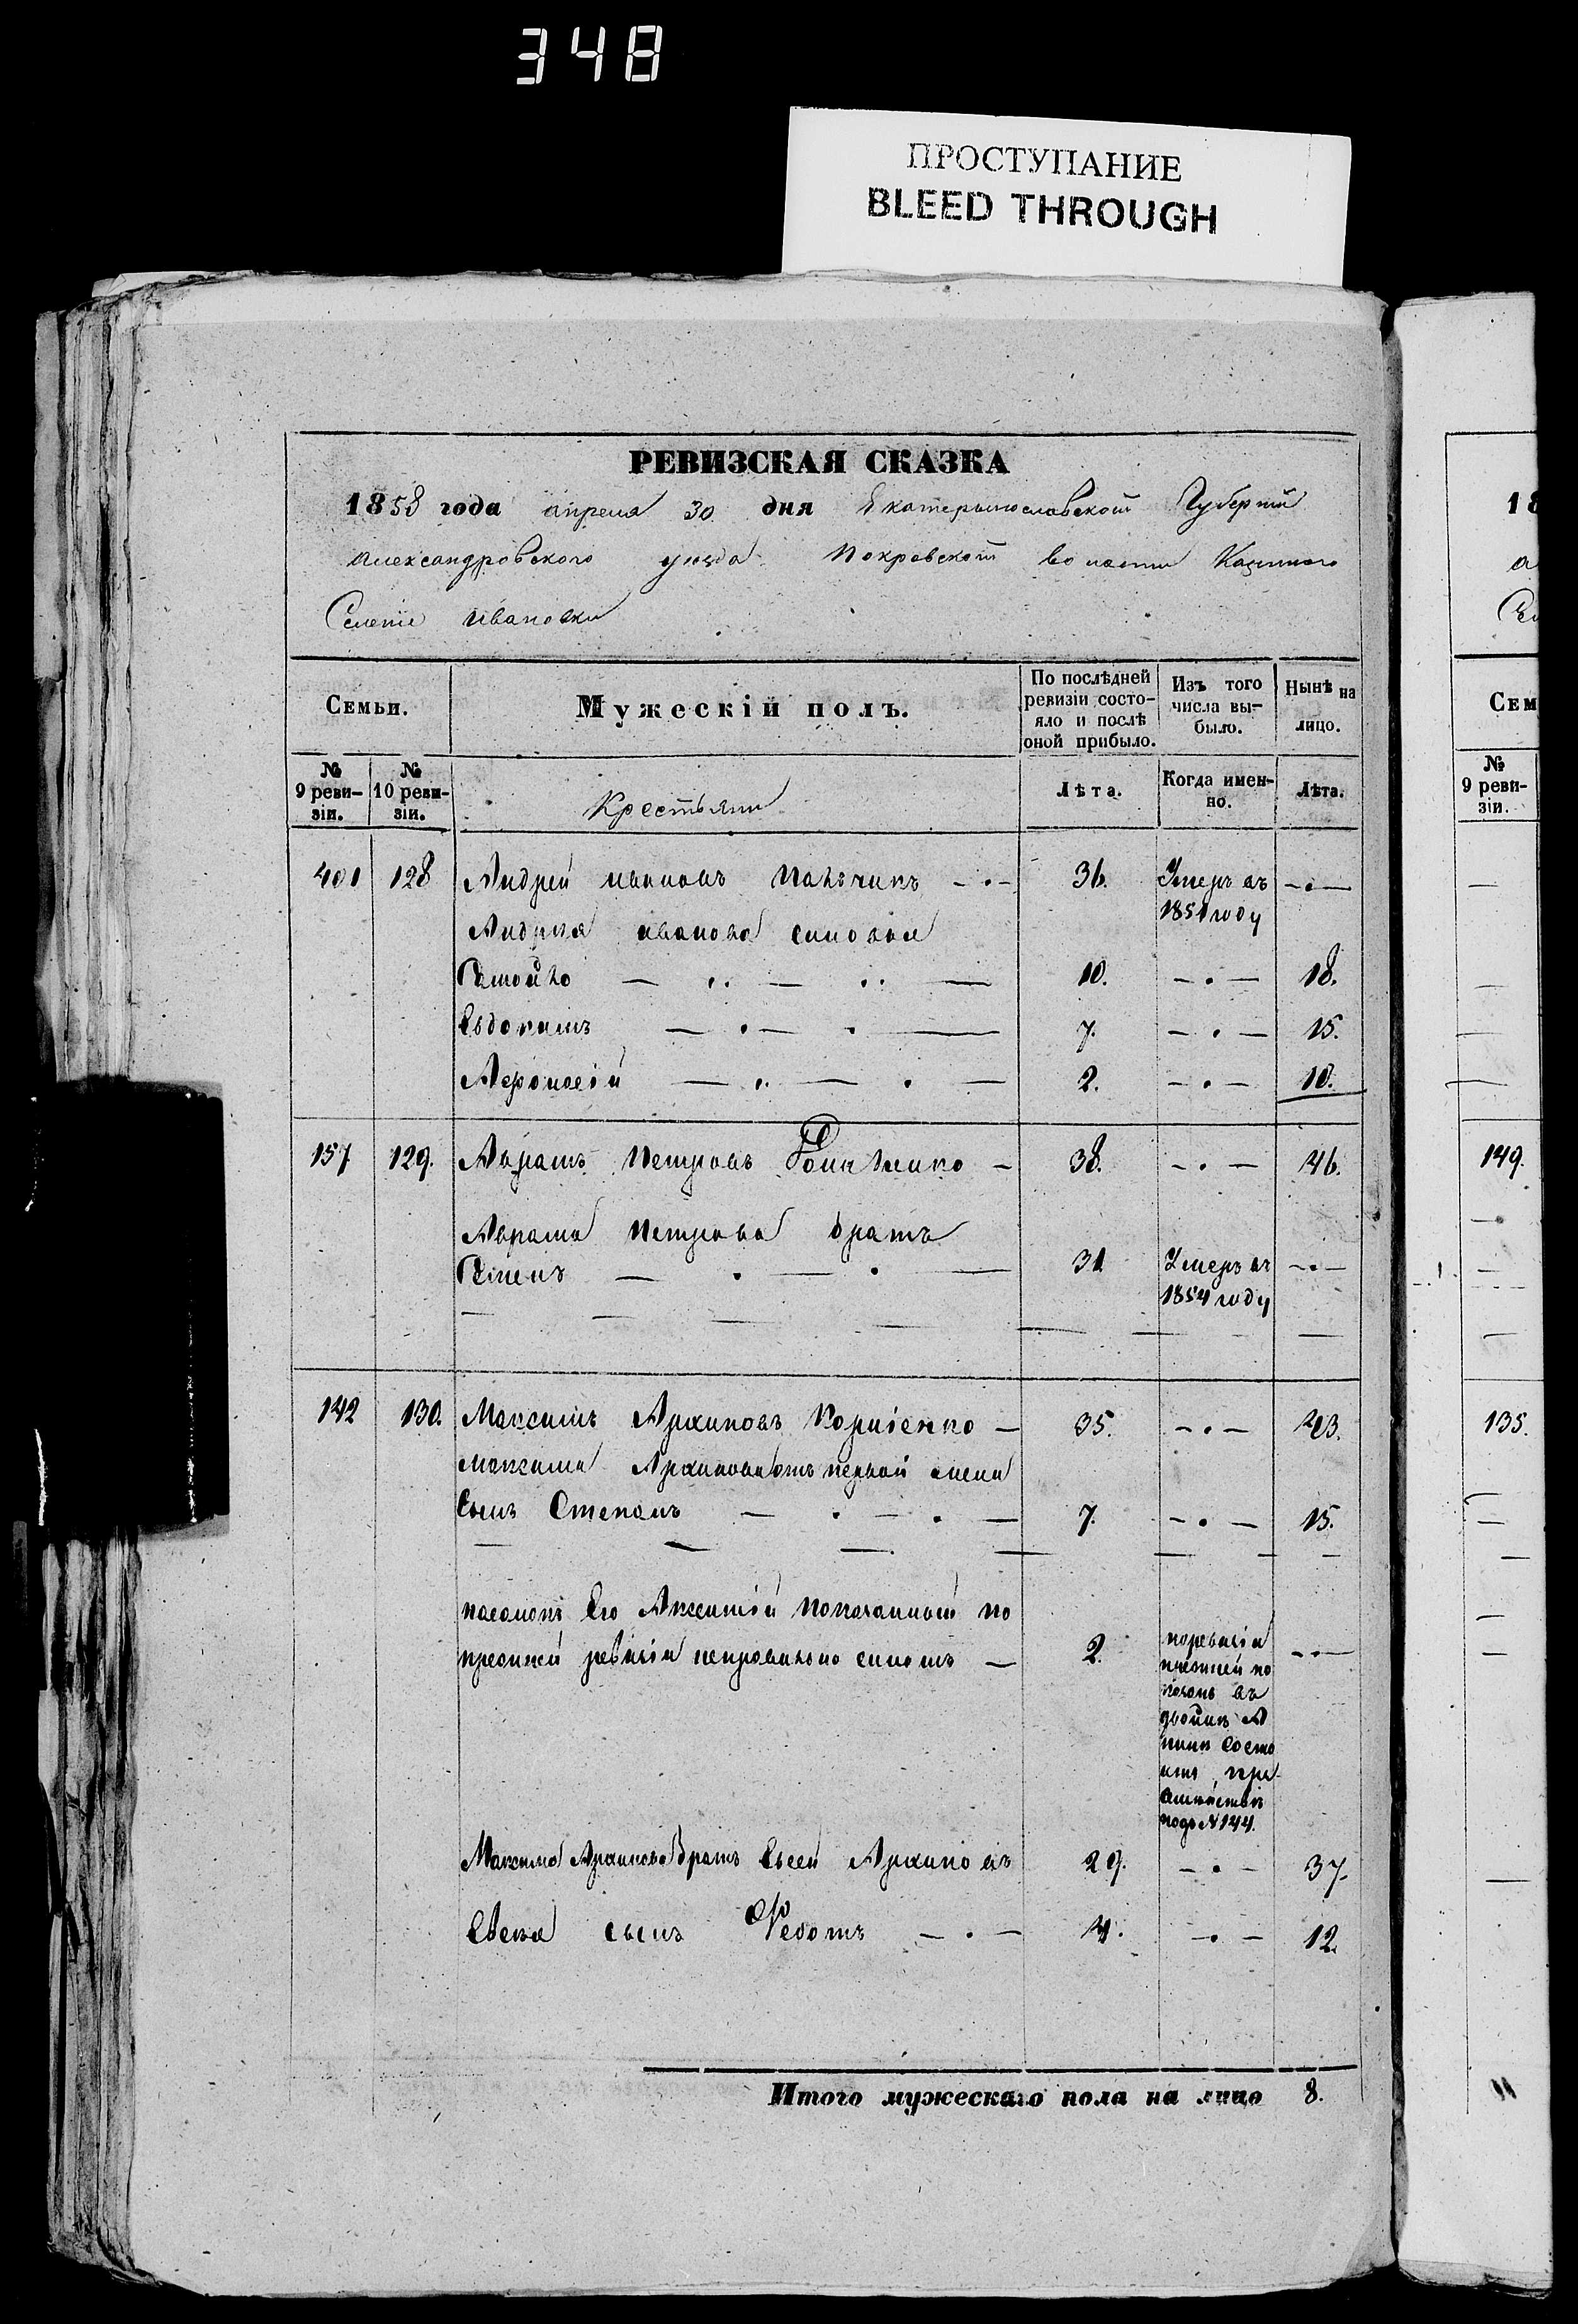 348
ПРОСТУПАНИЕ
BLEED THROUGH
РЕВИЗСКАЯ СКАЗКА
1858 года апреля 30 дня Екатеринославской Губерніи
Александровского уезда Покровской волости Казенного
Селеніе Ивановки
Семьи.
Мужескій полъ.
По послѣдней ревизіи состояло и послѣ оной прибыло.
Изъ того числа выбыло.
Нынѣ на лицо.
№ 9 ревизіи.
№ 10 ревизіи.
Крестьяни
Лѣта.
Когда именно.
Лѣта.
401 128 Андрей Ивановъ 36. Умеръ въ
1851 году
Андрея Иванова синовья
10. 18.
Евдокимъ 7. 15.
Афонасій 2. 10.
157 129. Аврамъ Петровъ 38. 46.
Аврама Петрова братъ
31 Умеръ въ
1854 году
142 130. Максимъ Архиповъ Корніенко 35. 43.
Максима Архипова отъ первой жены
Сынъ Степанъ 7. 15.
пасынокъ Его Показанный по
прежней ревизіи неправильно синомъ 2.
по ревизіи
прежней по
казанъ въ
двойнѣ А
нынѣ состо
итъ при
семействѣ
подъ № 144.
Максима Архипова братъ Евсей Архиповъ 29. 37.
Евсея сынъ Федотъ 4. 12.
Итого мужескаго пола на лицо 8.
18
а
Се
Сем
№
9 реви-
зіи.
149.
135.
11